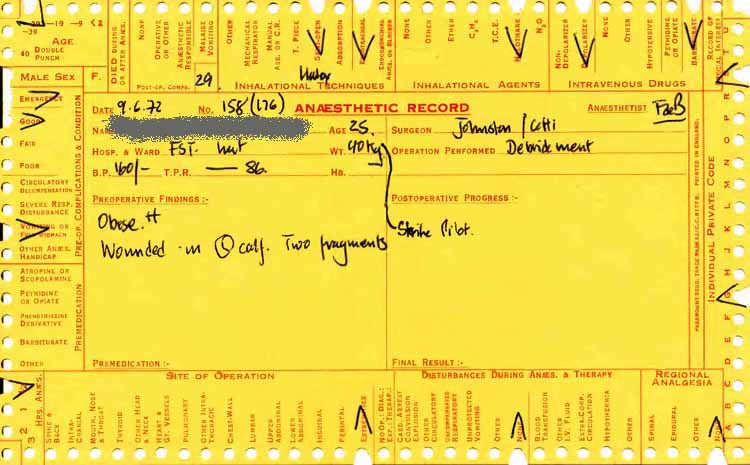 -39 -19 -9
AGE
40 DOUBLE PUNCH
DIED DURING OR AFTER ANÆS.
NONE
OPERATIVE OR OTHER
ANÆSTHETIC RESPONSIBLE
MALAISE VOMITING
OTHER
MECHANICAL RESPIRATOR
MANUAL ASS. OR C.R.
T. PIECE
ABSORPTION
ENDOTRACHEAL
NONE
OTHER
ETHER
C₃H₆
T.C.E.
HALOTHANE
N₂O
NON-DEPOLARIZER
DEPOLARIZER
NONE
OTHER
HYPOTENSIVE
PETHIDINE OR OPIATE
BARBITURATE
RECORD OF SPECIAL INTEREST
MALE SEX F.
POST-OP. COMPS. 29. INHALATIONAL TECHNIQUES INHALATIONAL AGENTS INTRAVENOUS DRUGS
DATE 9.6.72 NO. 158 (176) ANÆSTHETIC RECORD ANÆSTHETIST FdeB
AGE 25. SURGEON Johnston / Cotti
HOSP. & WARD FST. hut WT. 90kg OPERATION PERFORMED Debridement
B.P. 160/- T.P.R. — 86. HB.
PREOPERATIVE FINDINGS :- POSTOPERATIVE PROGRESS :-
Obese ++
Strike Pilot.
Wounded in (L) calf. Two fragments
PREMEDICATION :- FINAL RESULT :-
EMERGENCY
GOOD
FAIR
POOR
CIRCULATORY DECOMPENSATION
SEVERE RESP. DISTURBANCE
VOMITING OR FULL STOMACH
OTHER ANÆS. HANDICAP
PRE-OP. COMPLICATIONS & CONDITION
ATROPINE OR SCOPOLAMINE
PETHIDINE OR OPIATE
PHENOTHIAZINE DERIVATIVE
BARBITURATE
OTHER
PREMEDICATION
PRINTED IN ENGLAND.
INDIVIDUAL PRIVATE CODE
HRS. ANÆS.
3 2 1
SITE OF OPERATION DISTURBANCES DURING ANÆS. & THERAPY REGIONAL ANALGESIA
SPINE & BACK
INTRA-CRANIAL
MOUTH, NOSE & THROAT
THYROID
OTHER HEAD & NECK
HEART & GT. VESSELS
PULMONARY
OTHER INTRA-THORACIC
CHEST-WALL
LUMBAR
UPPER ABDOMINAL
LOWER ABDOMINAL
INGUINAL
PERINEAL
EXTREMITIES
NO OP: DIAG.: EXP.: THERAP.:
CARD. ARREST CONVULSION EXPLOSION
OTHER CIRCULATORY
UNIMPAIRED RESPIRATORY
UNPROTECTED VOMITING
OTHER
NONE
BLOOD TRANSFUSION
OTHER I.V. FLUID
EXTRA-CORP. CIRCULATION
HYPOTHERMIA
OTHER
SPINAL
EPIDURAL
OTHER
NONE